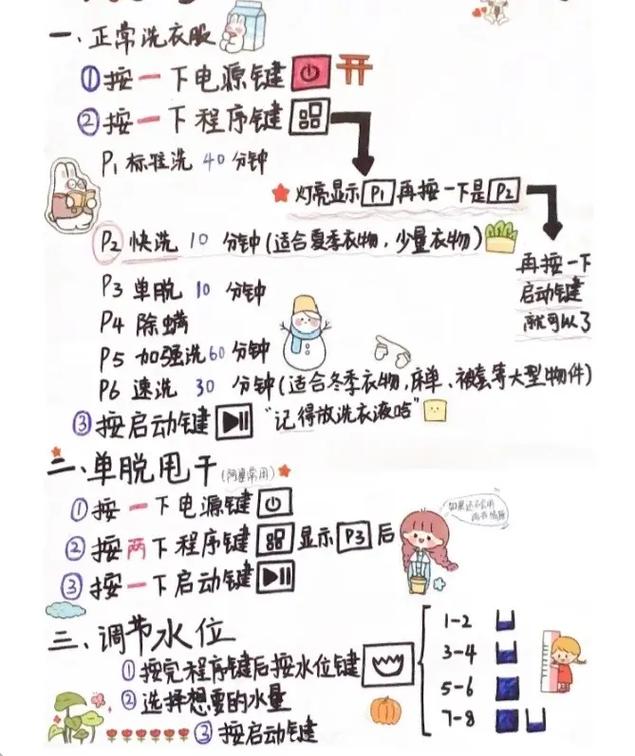 一、正常洗衣服
①按一下电源键
②按一下程序键
P1 标准洗 40 分钟
灯亮显示 P1 再按一下是 P2
P2 快洗 10 分钟(适合夏季衣物,少量衣物)
再按一下
启动键
就可以了
P3 单脱 10 分钟
P4 除螨
P5 加强洗 60 分钟
P6 速洗 30 分钟(适合冬季衣物,床单、被套等大型物件)
③按启动键 "记得放洗衣液哈"
二、单脱甩干(阿婆常用)
①按一下电源键
②按两下程序键 显示 P3 后
③按一下启动键
如果还不会用
三、调节水位
①按完程序键后按水位键
②选择想要的水量
③按启动键
1-2
3-4
5-6
7-8